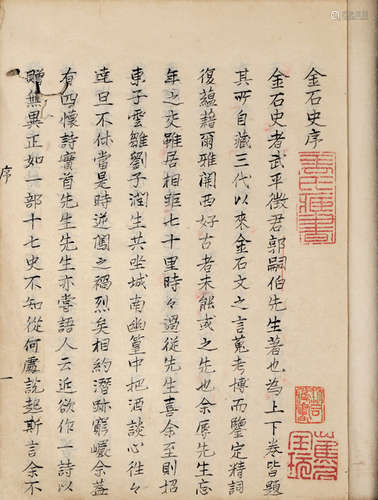 金石史序
金石史者武平徵君郭嗣伯先生著也為上下卷皆題
其所自藏三代以來金石文之言蒐考博而鑒定精詞
復蘊藉爾雅関西好古者未能或之先也余辱先生忘
年之交雖居相距七十里時々過從先生喜余至則招
東子雲雛劉子潤生共坐城南幽篁中把酒談心往々
達旦不休當是時逆闖之禍烈矣相約潛跡窮巘余蓋
有四懷詩實首先生先生亦嘗語人云近欲作一詩以
贈無異正如一部十七史不知從何處說起斯言余不
序
一